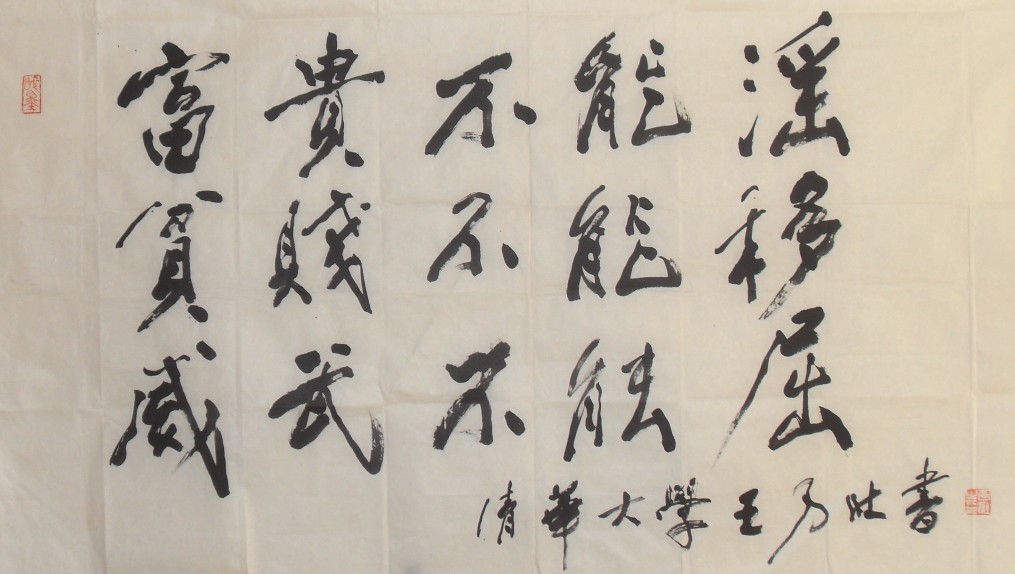 富貴不能淫
貧賤不能移
威武不能屈
清華大學王乃壯書